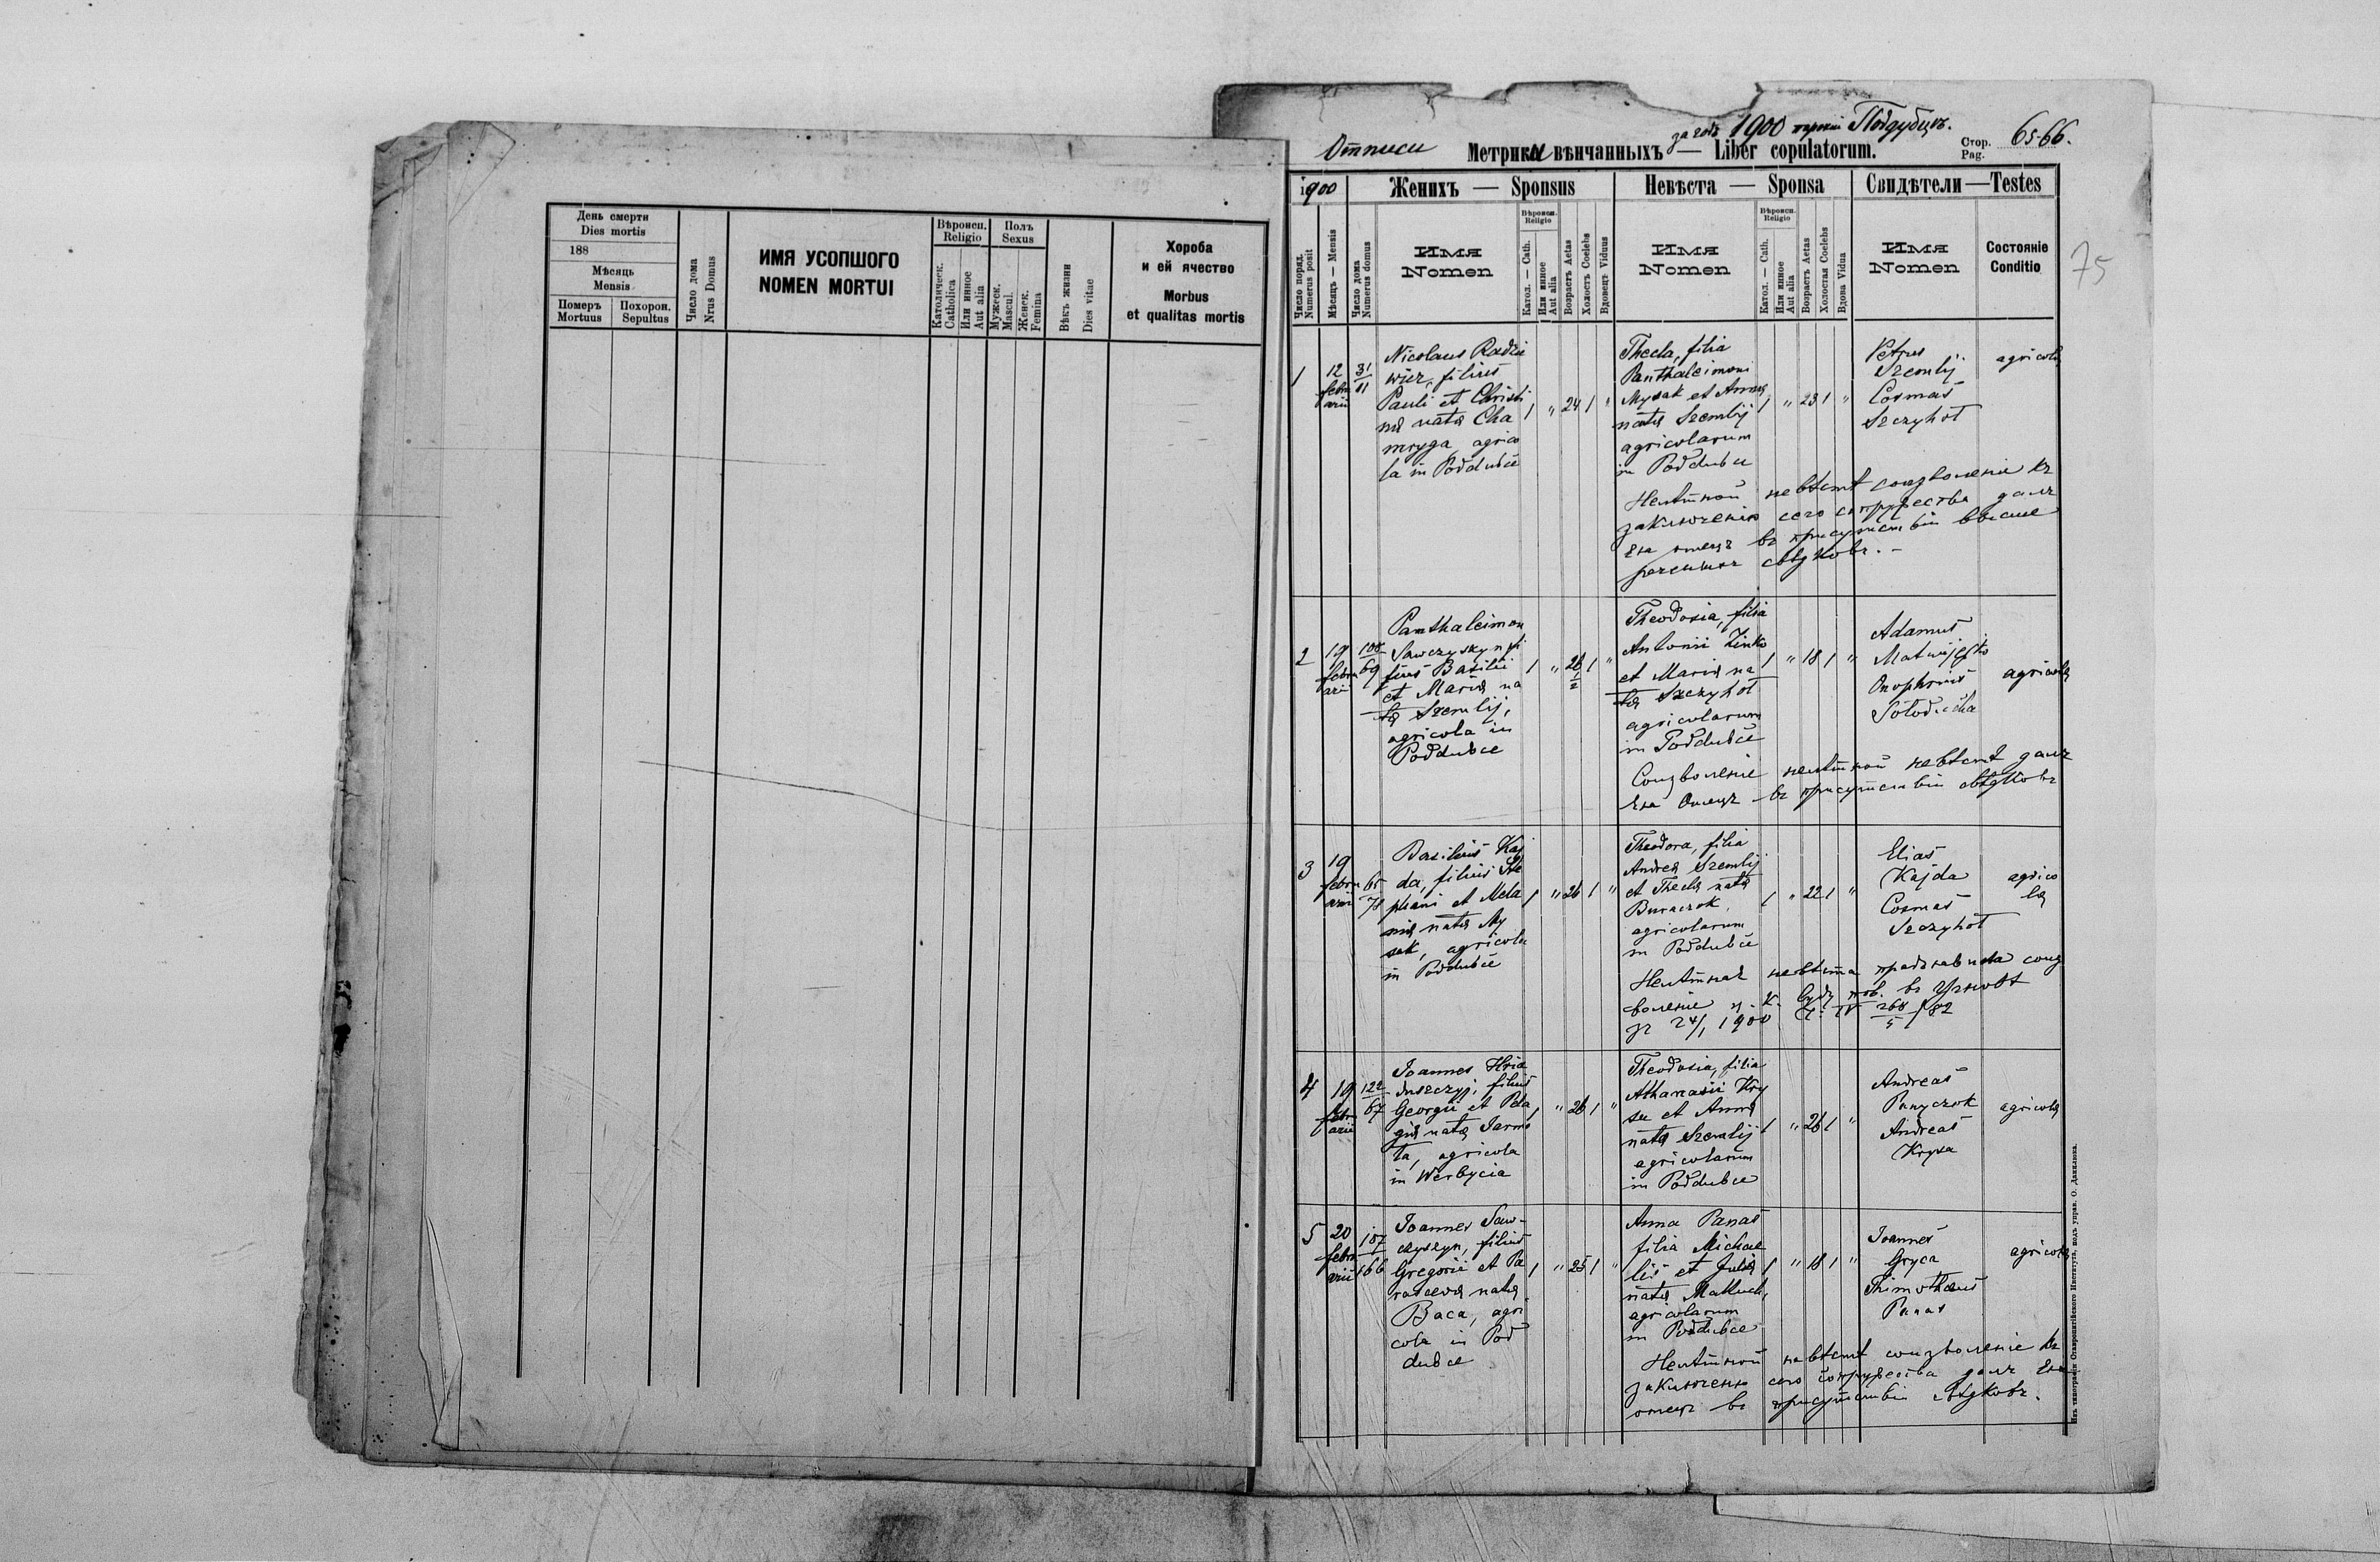 День смерти
Dies mortis
188
Мѣсяць
Mensis
Померъ
Mortuus
Похорон.
Sepultus
Число дома
Nrus Domus
ИМЯ УСОПШОГО
NOMEN MORTUI
Вѣроисп.
Religio
Католическ.
Catholica
Или инное
Aut alia
Полъ
Sexus
Мужеск.
Mascul.
Женск.
Femina
Вѣкъ жизни
Dies vitae
Хороба
и ей ячество
Morbus
et qualitas mortis
за годъ 1900 парохіи Поддубцѣ.
Отписи Метрики вѣнчанныхъ — Liber copulatorum.
Стор.
Pag. 65-66.
75
1900
Женихъ — Sponsus
Невѣста — Sponsa
Свидѣтели — Testes
Число поряд.
Numerus posit
Мѣсяцъ — Mensis
Число дома
Numerus domus
Имя
Nomen
Вѣроисп.
Religio
Катол. — Cath.
Или инное
Aut alia
Возрастъ Aetas
Холостъ Coelebs
Вдовецъ Viduus
Имя
Nomen
Вѣроисп.
Religio
Катол. — Cath.
Или инное
Aut alia
Возрастъ Aetas
Холостая Coelebs
Вдова Vidua
Имя
Nomen
Состояніе
Conditio
1
12
febru
arii
31
11
Nicolaus Radzie
wicz, filius
Pauli et Christi
nę natę Cha
mryga, agrico
la in Poddubce
1 " 24 1 "
Thecla, filia
Panthaleimoni
Mysak et Annę
natę Szemlij
agricolarum
in Poddubce
1 " 23 1 "
Petrus
Szemlij
Cosmas
Szczyhoł
agricolę
Нелѣтной невѣстѣ соизволеніе къ
заключенію сего супружества далъ
Ея отецъ въ присутствіи висше
реченныхъ свѣдковъ. –
2
19
febru
arii
108
69
Panthaleimon
Sawczyszyn fi
lius Basilii
et Marię na
tę Szemlij,
agricola in
Poddubce
1 " 26 1/2 1 "
Theodosia, filia
Antonii Zinko
et Marię na
tę Szczyhoł
agricolarum
in Poddubce
1 " 18 1 "
Adamus
Onophrius
Sołoducha
agricolę
Соизволеніе нелѣтной невѣстѣ далъ
Ея Отецъ въ присутствіи свѣдковъ
3
19
febru
arii
65
78
Basilius Kaj
da, filius Ste
phani et Mela
nię natę My
sak, agricola
in Poddubce
1 " 26 1 "
Theodora, filia
Andreę Szemlij
et Theclę natę
Buraczok,
agricolarum
in Poddubce
1 " 22 1 "
Elias
Kajda
Cosmas
Szczyhoł
agrico
lę
Нелѣтная невѣста предъявила соиз
воленіе ц. к. Суду пов. въ Угновѣ
зъ 24/1 1900 Ч. IV 268/5 /82
4
19
febru
arii
122
67
Joannes Hria
duszczyj, filius
Georgii et Pela
gię natę Jarmo
ła, agricola
in Werbycia
1 " 26 1 "
Theodosia, filia
Athanasii Kry
sa et Annę
natę Szemlij
agricolarum
in Poddubce
1 " 26 1 "
Andreas
Panyczok
Andreas
Krysa
agricolę
5
20
febru
arii
107
166
Joannes Saw-
czyszyn, filius
Gregorii et Pa
rascevę natę
Baca, agri
cola in Pod
dubce
1 " 25 1 "
Anna Panas
filia Michae
lis et Julię
natę Małuch,
agricolarum
in Poddubce
1 " 18 1 "
Joannes
Gryca
Thimotheus
Panas
agricolę
Нелѣтной невѣстѣ соизволеніе къ
заключенію сего супружества далъ Ея
отецъ въ присутствіи свѣдковъ.
Изъ типографіи Ставропигійского Института, подъ управ. О. Данилюка.